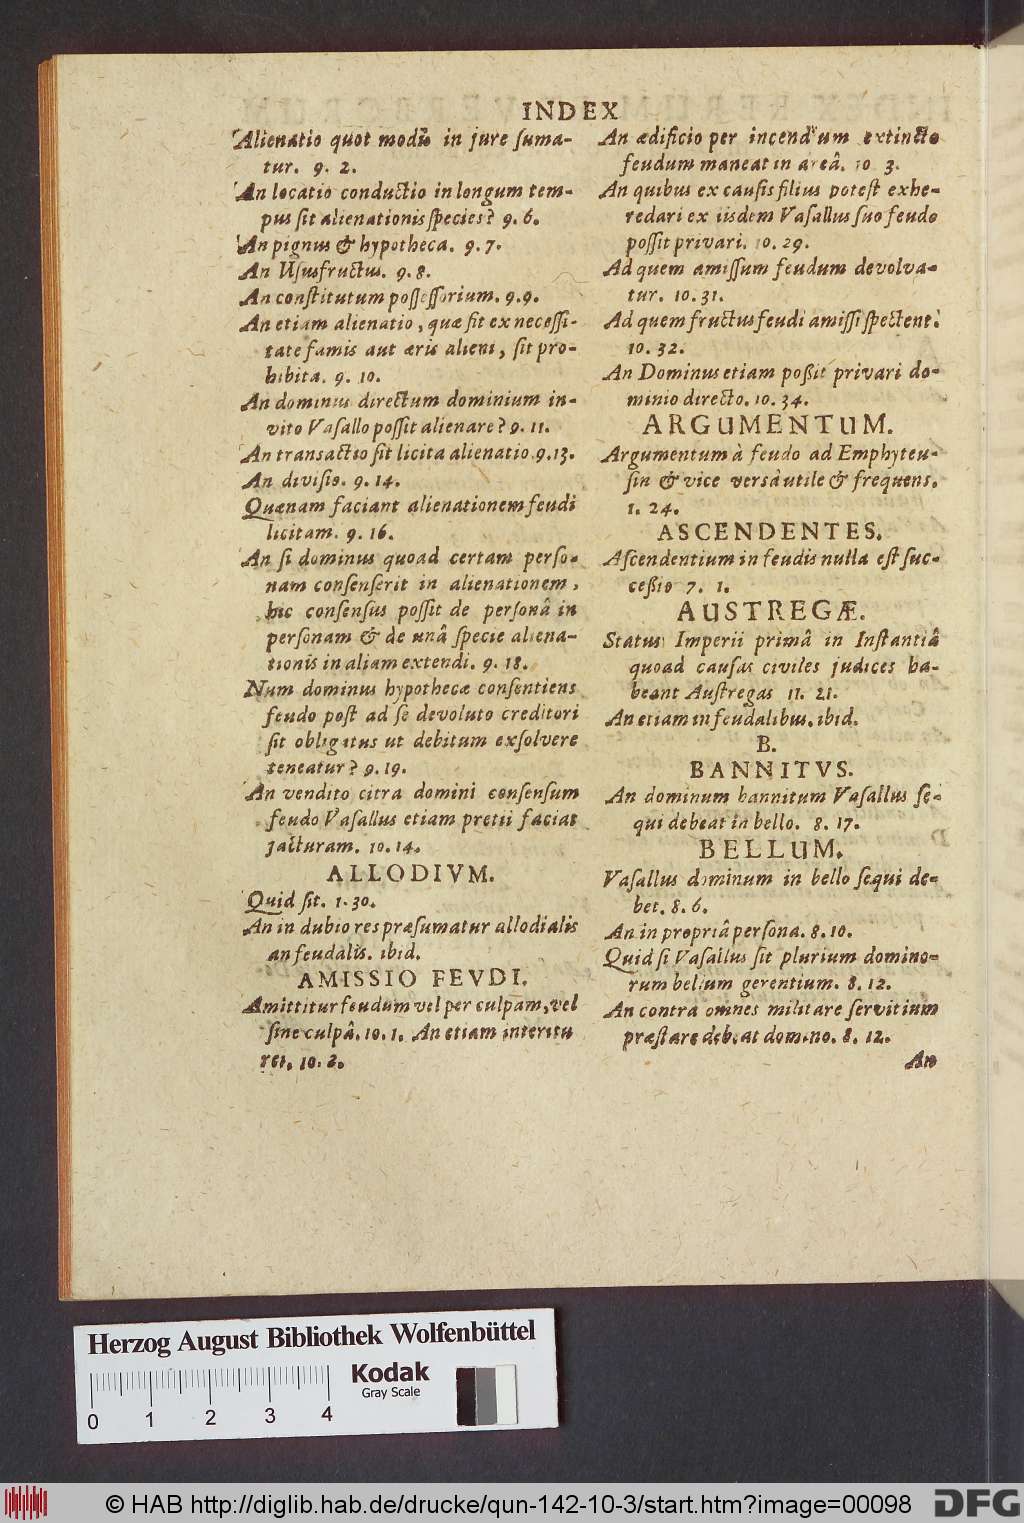 INDEX
Alienatio quot modis in jure ſuma-
tur. 9. 2.
An locatio conductio in longum tem-
pus ſit alienationis ſpecies? 9. 6.
An pignus & hypotheca. 9. 7.
An Uſusfructus. 9. 8.
An conſtitutum poſſeſſorium. 9. 9.
An etiam alienatio, quæ fit ex neceſſi-
tate famis aut æris alieni, ſit pro-
hibita. 9. 10.
An dominus directum dominium in-
vito Vaſallo poſſit alienare? 9. 11.
An transactio ſit licita alienatio. 9. 13.
An diviſio. 9. 14.
Quænam faciant alienationem feudi
licitam. 9. 16.
An ſi dominus quoad certam perſo-
nam conſenſerit in alienationem,
hic conſenſus poſſit de perſonâ in
perſonam & de unâ ſpecie aliena-
tionis in aliam extendi. 9. 18.
Num dominus hypothecæ conſentiens
feudo poſt ad ſe devoluto creditori
ſit obligatus ut debitum exſolvere
teneatur? 9. 19.
An vendito citra domini conſenſum
feudo Vaſallus etiam pretii faciat
jacturam. 10. 14.
ALLODIVM.
Quid ſit. 1. 30.
An in dubio res præſumatur allodialis
an feudalis. ibid.
AMISSIO FEVDI.
Amittitur feudum vel per culpam, vel
ſine culpâ. 10. 1. An etiam interitu
rei. 10. 2.
An ædificio per incendium extincto
feudum maneat in areâ. 10. 3.
An quibus ex cauſis filius poteſt exhe-
redari ex iisdem Vaſallus ſuo feudo
poſſit privari. 10. 29.
Ad quem amiſſum feudum devolva-
tur. 10. 31.
Ad quem fructus feudi amiſſi ſpectent.
10. 32.
An Dominus etiam poßit privari do-
minio directo. 10. 34.
ARGUMENTUM.
Argumentum à feudo ad Emphyteu-
ſin & vice versà utile & frequens.
1. 24.
ASCENDENTES.
Aſcendentium in feudis nulla eſt ſuc-
ceßio 7. 1.
AUSTREGÆ.
Status Imperii primâ in Inſtantiâ
quoad cauſas civiles judices ha-
beant Auſtregas 11. 21.
An etiam in feudalibus. ibid.
B.
BANNITVS.
An dominum bannitum Vaſallus ſe-
qui debeat in bello. 8. 17.
BELLUM.
Vaſallus dominum in bello ſequi de-
bet. 8. 6.
An in propriâ perſona. 8. 10.
Quid ſi Vaſallus ſit plurium domino-
rum bellum gerentium. 8. 12.
An contra omnes militare ſervitium
præſtare debeat domino. 8. 12.
An
Herzog August Bibliothek Wolfenbüttel
Kodak
Gray Scale
0 1 2 3 4
© HAB http://diglib.hab.de/drucke/qun-142-10-3/start.htm?image=00098
DFG